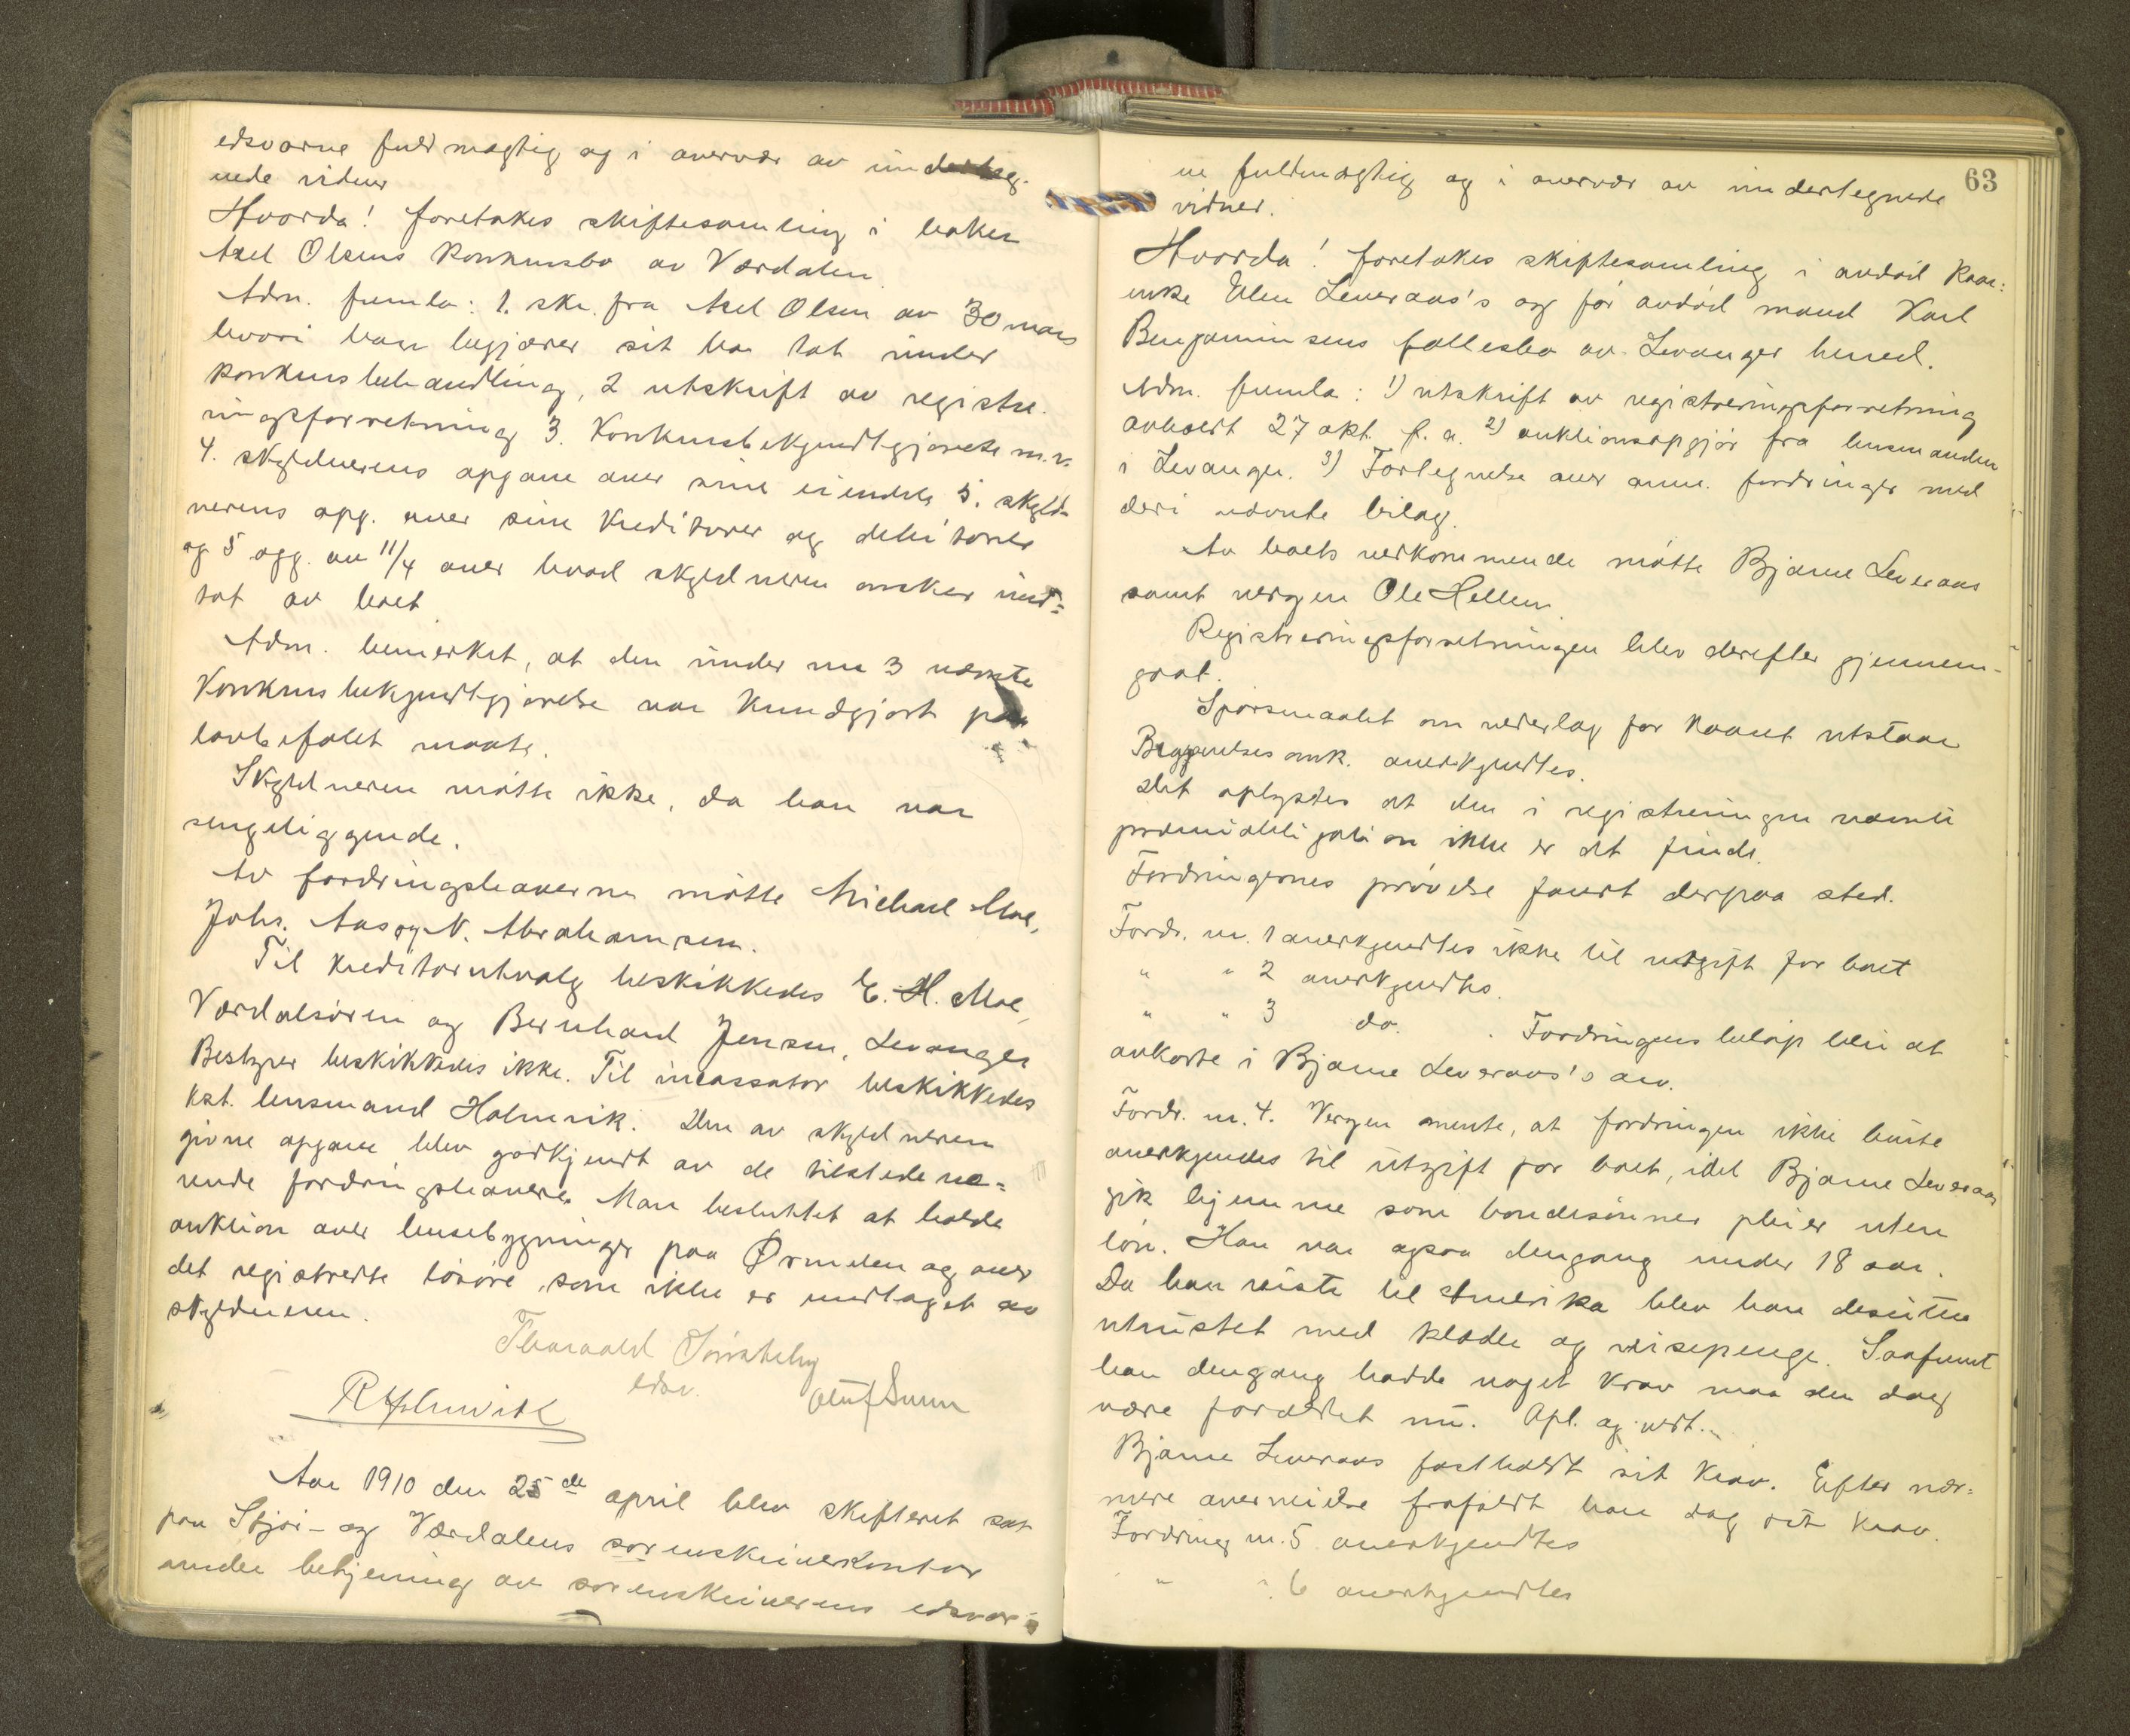 edsvorne fuldmægtig og i overvær av underteg-
nede vidner
Hvorda! foretokes skiftesamling i baker
Axel Olsens konkursbo av Værdalen.
Adm. freml: 1. skr. fra Axel Olsen av 30 mars
hvori han begjærer sit bo tat under
konkursbehandling, 2 utskrift av registre-
ringsforretning 3. Konkursbekjendtgjørelse m.v.
4. skyldnerens opgave over sine eiendele 5. skyld-
nerens opg. over sine kreditorer og debitorer
og 5 opg. av 11/4 over hvad skyldneren ønsker und-
tat av boet
Adm. bemerket, at den under nr 3 nævnte
Konkursbekjendtgjørelse var kundgjort paa
lovbefalet maate.
Skyldneren møtte ikke, da han var
sengeliggende.
Av fordringshaverne møtte Michael Moe,
Johs. Aas og N. Abrahamsen.
Til kreditorutvalg beskikkedes E. H. Moe,
Værdalsøren og Bernhard Jensen, Levanger
Bestyrer beskikkedes ikke. Til incassator beskikkedes
kst. lensmand Holmvik. Den av skyldneren
givne opgave blev godkjendt av de tilstedevæ-
rende fordringshavere. Man besluttet at holde
auktion over husebygninger paa Ørmelen og over
det registrerte løsøre, som ikke er undtaget av
skyldneren.
Thorvald
edsv.
Oluf Sunn
Aar 1910 den 25de april blev skifteret sat
paa Stjør- og Værdalens sorenskriverkontor
under betjening av sorenskriverens edsvor-
63
ne fuldmægtig og i overvær av undertegnede
vidner.
Hvorda! foretokes skiftesamling i avdød kaar-
enke Elen Leveraas's og før avdød mand Karl
Benjaminsens fællesbo av Levanger herred.
Adm. fremla: 1) utskrift av registreringsforretning
avholdt 27 okt. f. a. 2) auktionsopgjør fra lensmanden
i Levanger. 3) Fortegnelse over anm. fordringer med
deri nævnte bilag.
Av boets vedkommende møtte Bjarne Leveraas
samt vergen Ole Hellem
Registreringsforretningen blev derefter gjennem-
gaat.
Spørsmaalet om vederlag for kaaret utstaar
Begravelsesomk. anerkjendtes.
Det oplystes at den i registreringen nævnte
præmieobligation ikke er at finde.
Fordringernes prøvelse fandt derpaa sted.
Fordr. nr. 1 anerkjendtes ikke til utgift for boet
" " 2 anerkjendtes.
" " 3 do. Fordringens beløp blir at
avkorte i Bjarne Leveraas's arv.
Fordr. nr. 4. Vergen mente, at fordringen ikke burte
anerkjendes til utgift for boet, idet Bjarne Leveraas
gik hjemme som bondesønner pleier uten
løn. Han var ogsaa dengang under 18 aar.
Da han reiste til Amerika blev han desuten
utrustet med klæder og reisepenge. Saafremt
han dengang hadde noget krav maa den dog
være forældet nu. Opl. og vedt.
Bjarne Leveraas fastholdt sit krav. Efter nær-
mere overveielse frafaldt han dog sit krav.
Fordring nr. 5 anerkjendtes
" " 6 anerkjendtes